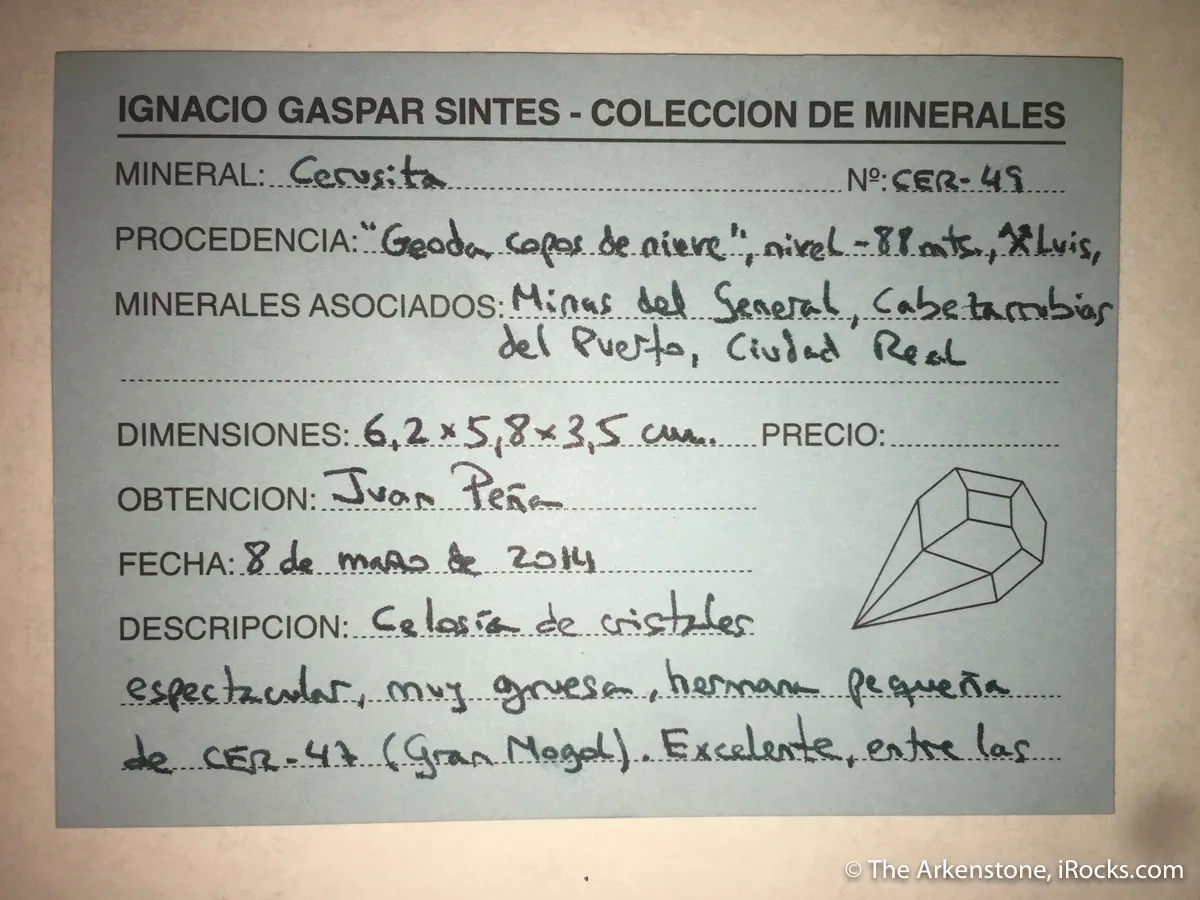 IGNACIO GASPAR SINTES - COLECCION DE MINERALES
MINERAL: Cerusita Nº: CER-49
PROCEDENCIA: "Geoda copos de nieve", nivel -88 mts., Luis,
MINERALES ASOCIADOS: Minas del General, Cabezarrubias
del Puerto, Ciudad Real
DIMENSIONES: 6,2 x 5,8 x 3,5 cm. PRECIO:
OBTENCION: Juan Peña
FECHA: 8 de marzo de 2014
DESCRIPCION: Celosía de cristales
espectacular, muy gruesa, hermana pequeña
de CER-47 (Gran Mogol). Excelente, entre las
© The Arkenstone, iRocks.com